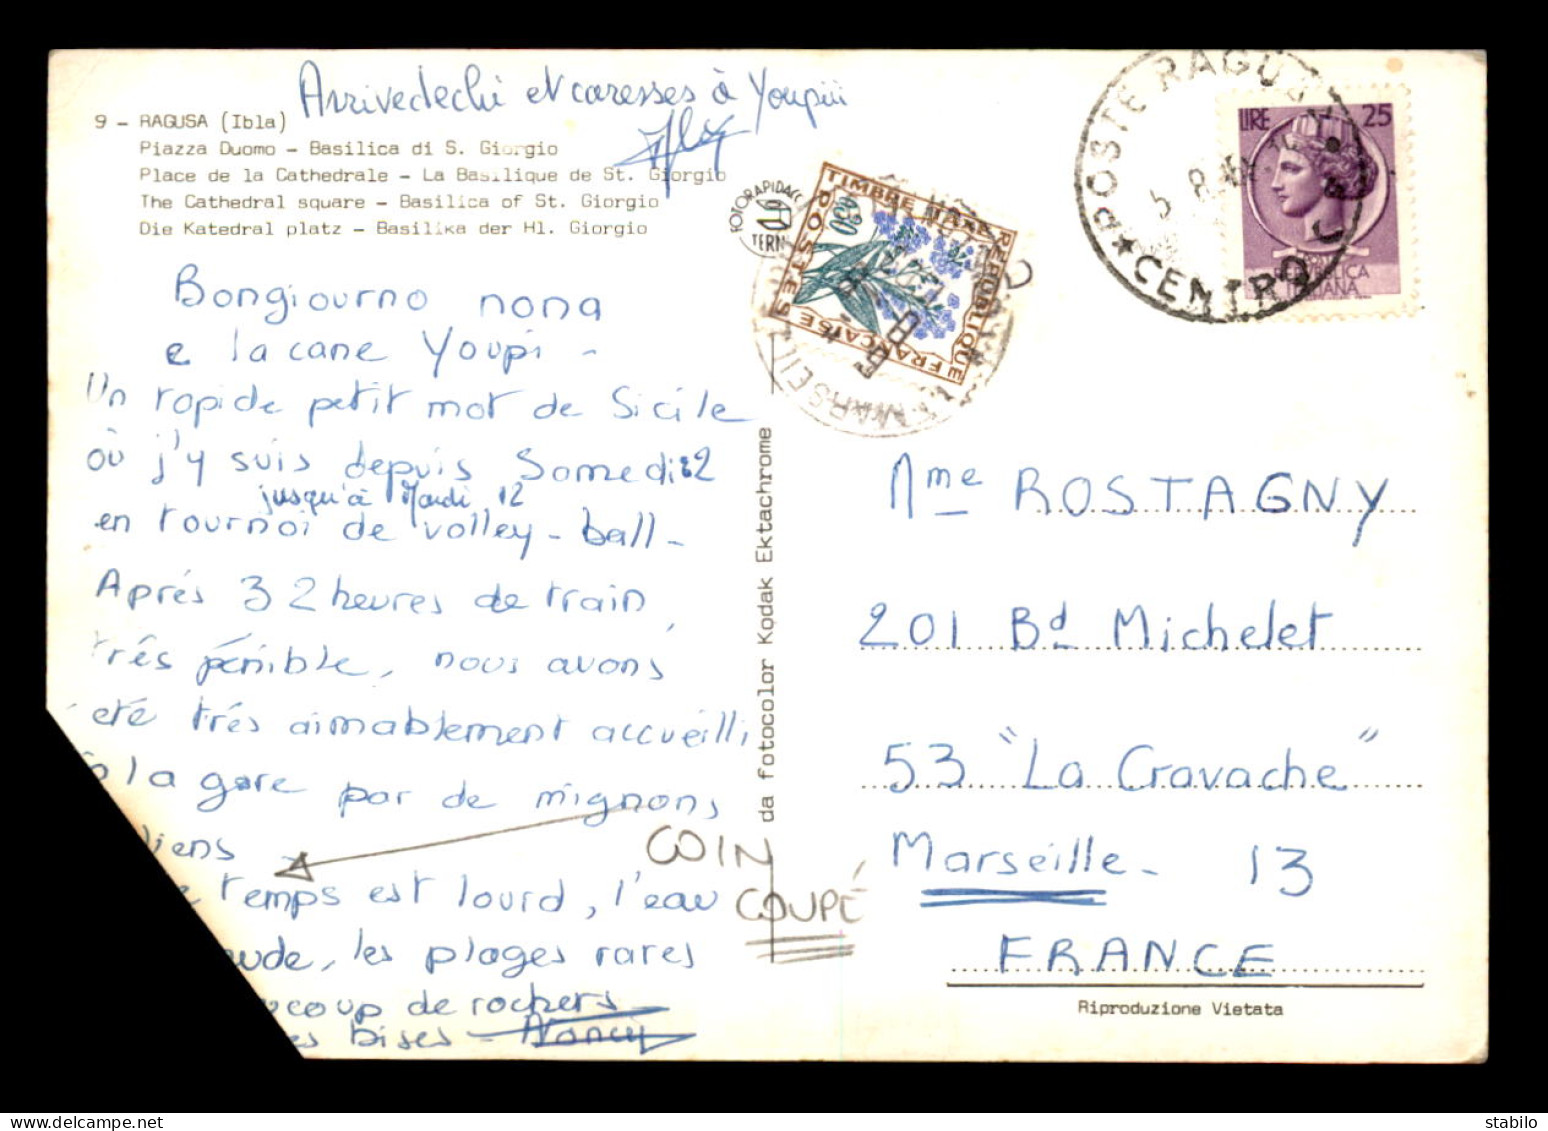 Arrivedechi et caresses à Youpiii
9 - RAGUSA (Ibla)
Piazza Duomo - Basilica di S. Giorgio
Place de la Cathedrale - La Basilique de St. Giorgio
The Cathedral square - Basilica of St. Giorgio
Die Katedral platz - Basilika der Hl. Giorgio
Bongiourno nona
e la cane Youpi -
Un rapide petit mot de Sicile
où j'y suis depuis Samedi 2
jusqu'à Mardi 12
en tournoi de volley-ball-
Aprés 32 heures de train,
trés pénible, nous avons
été trés aimablement accueilli
à la gare par de mignons
diens
temps est lourd, l'eau
aude, les plages rares
ucoup de rochers
es bises - Nancy
COIN
COUPÉ
da fotocolor Kodak Ektachrome
FOTORAPIDACOLOR
TERNI
TIMBRE TAXE
REPUBLIQUE
FRANÇAISE
POSTES
0,30
MARSEILLE
POSTE RAGUSA
★ CENTRO
5 8
LIRE 25
REPUBBLICA
ITALIANA
Mme ROSTAGNY
201 Bd Michelet
53 "La Cravache"
Marseille - 13
FRANCE
Riproduzione Vietata
stabilo